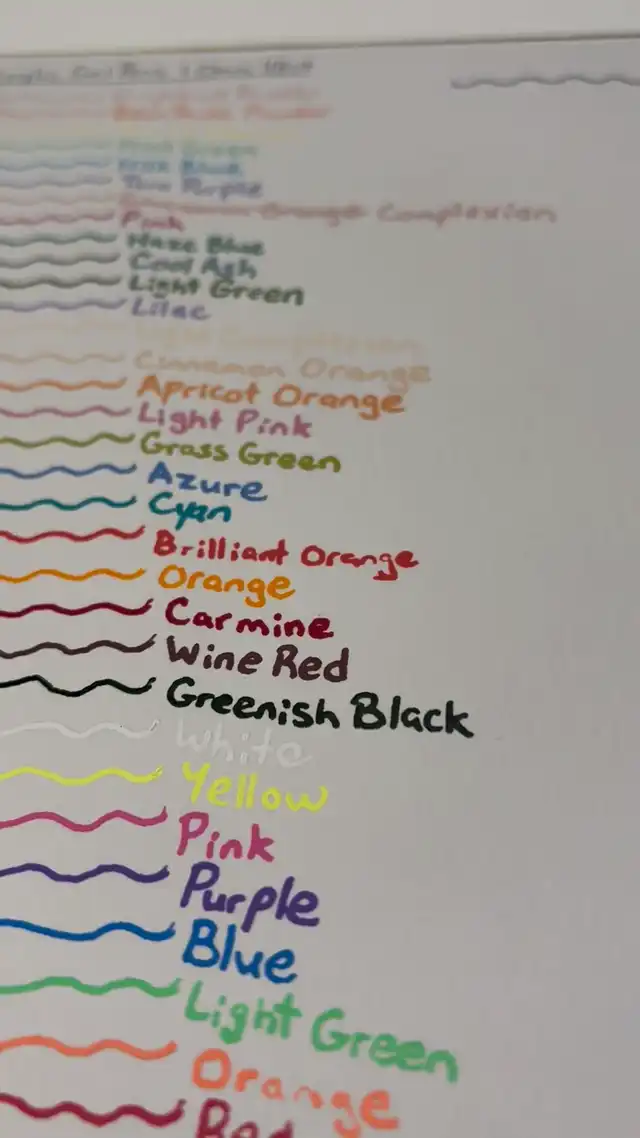 Blue
Purple
Orange Complexion
Pink
Haze Blue
Cool Ash
Light Green
Lilac
Light Complexion
Cinnamon Orange
Apricot Orange
Light Pink
Grass Green
Azure
Cyan
Brilliant Orange
Orange
Carmine
Wine Red
Greenish Black
White
Yellow
Pink
Purple
Blue
Light Green
Orange
Red